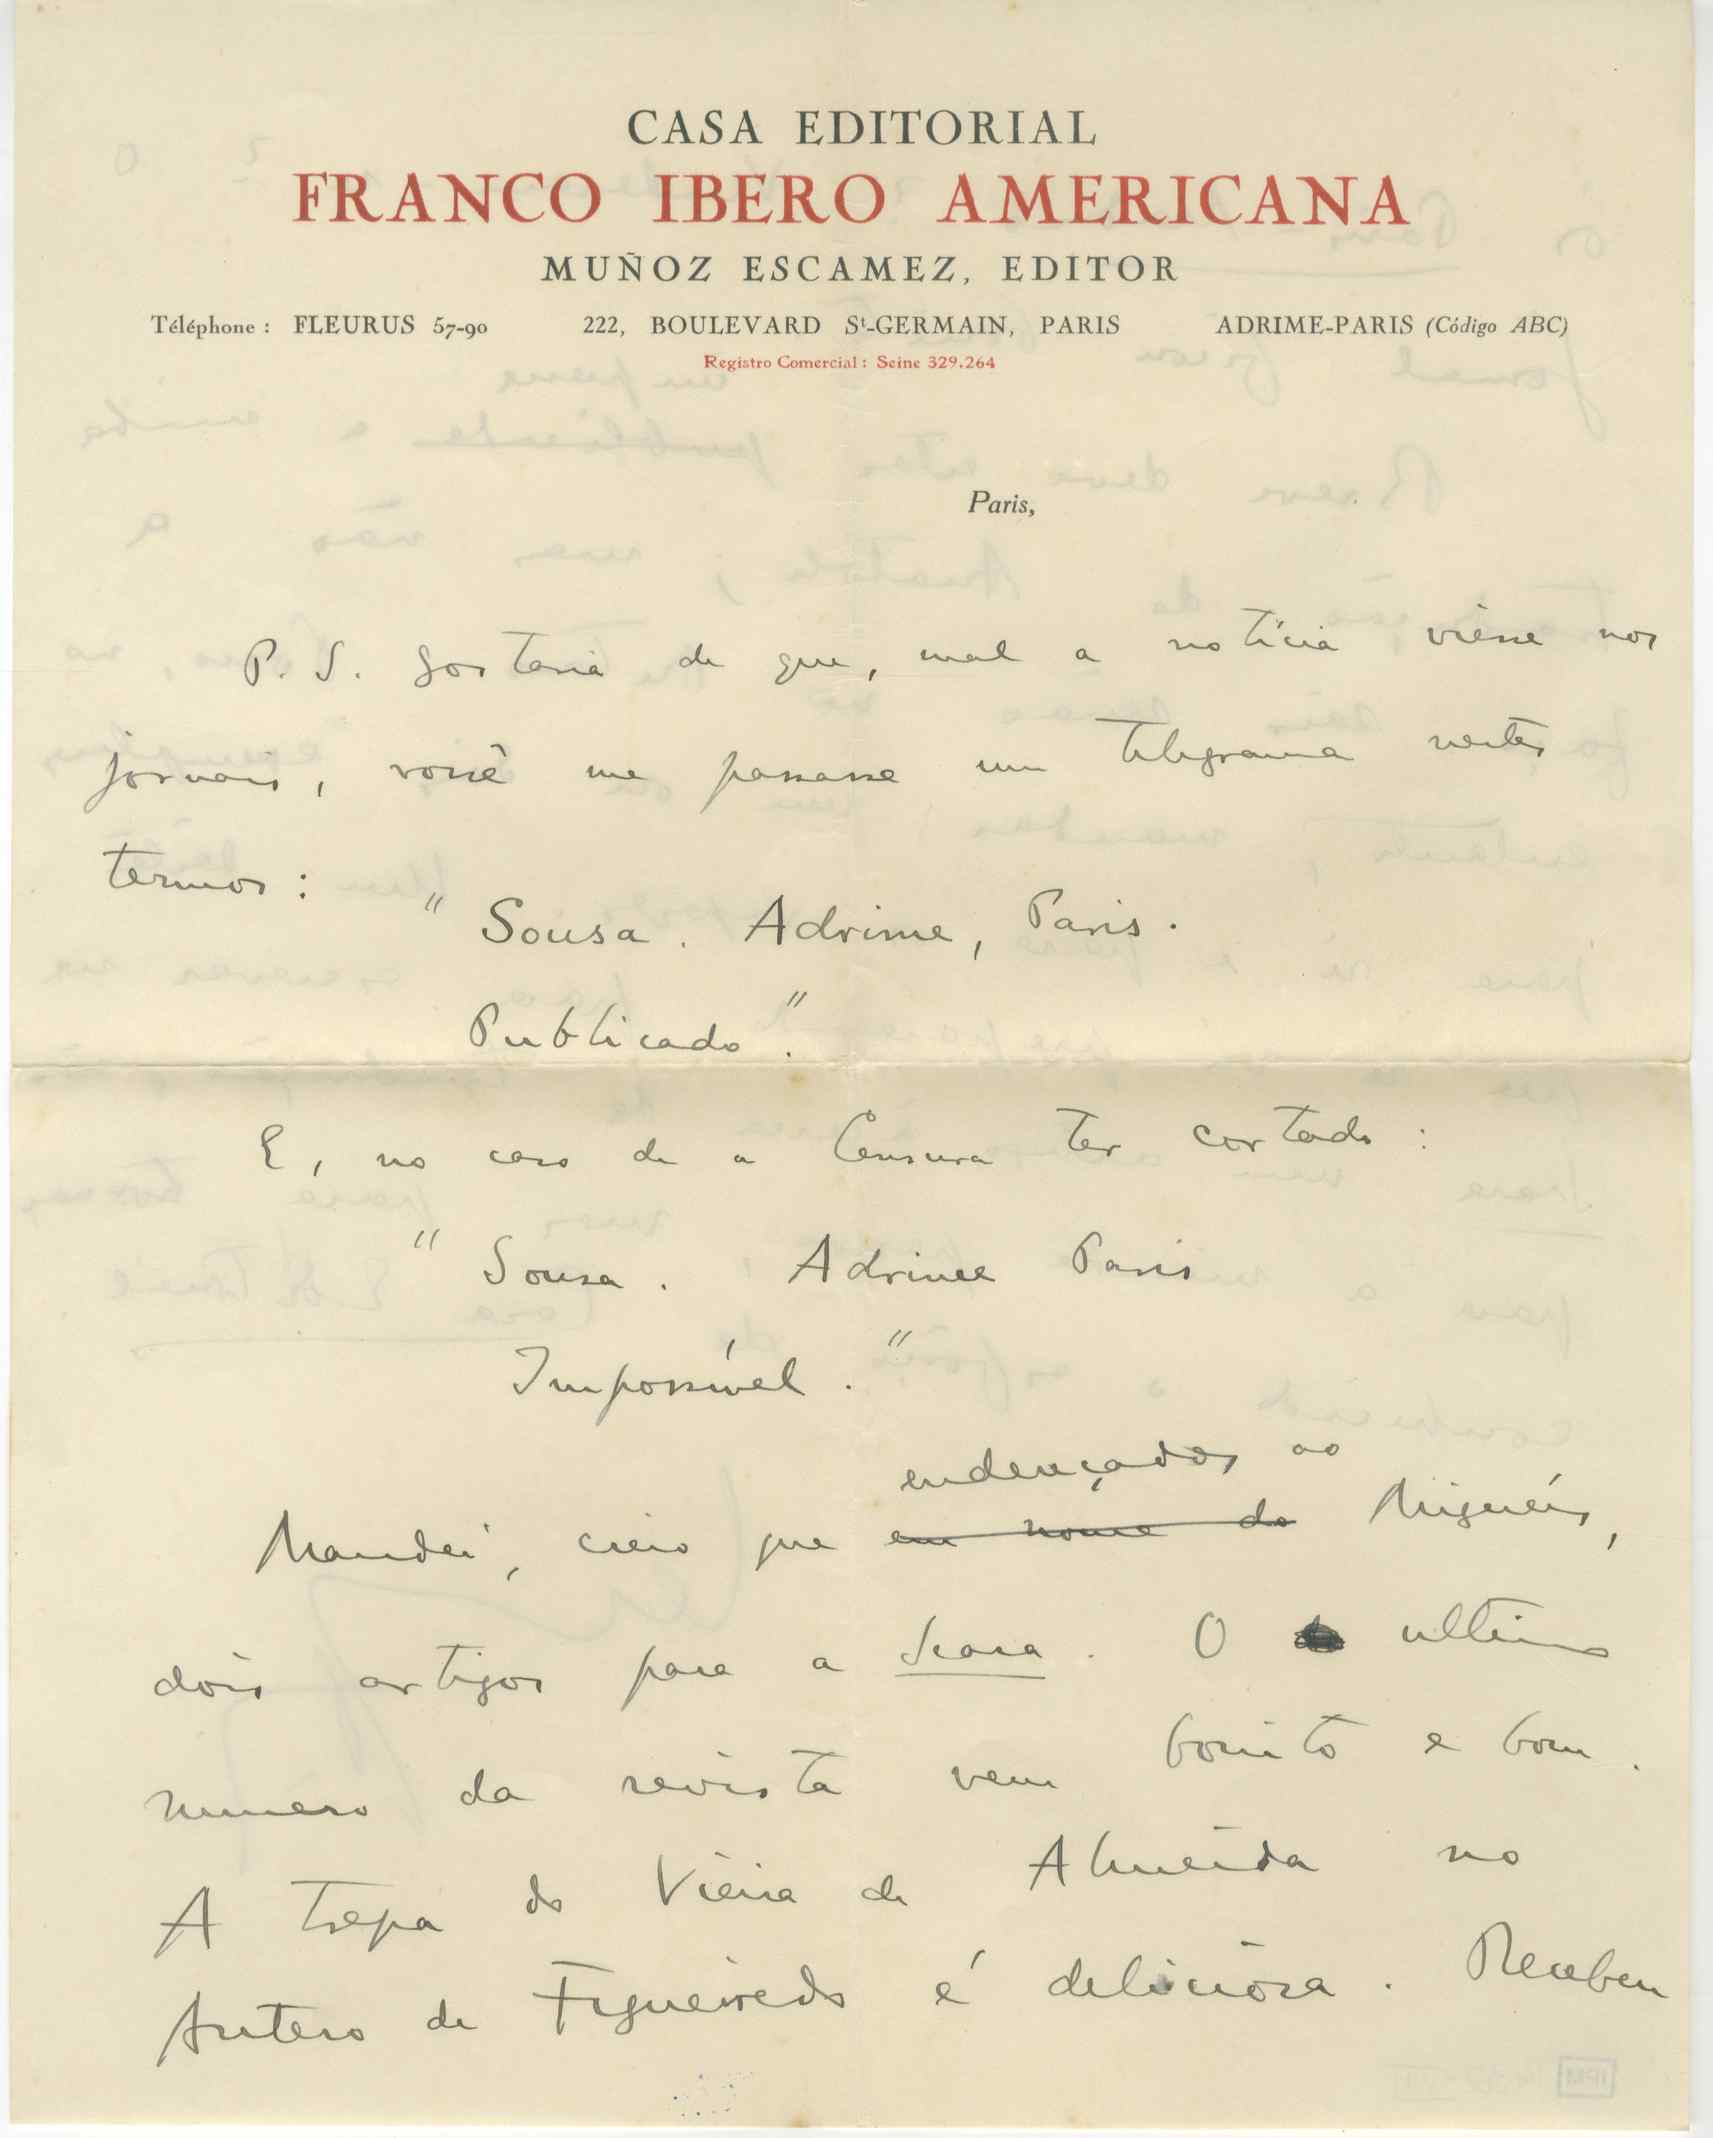 CASA EDITORIAL
FRANCO IBERO AMERICANA
MUÑOZ ESCAMEZ, EDITOR
Téléphone : FLEURUS 57-90 222, BOULEVARD St-GERMAIN, PARIS ADRIME-PARIS (Código ABC)
Registro Comercial : Seine 329.264
Paris,
P. S. Gostaria de que, mal a notícia viesse nos
jornais, você me passasse um telegrama nestes
termos :
" Sousa. Adrime, Paris.
Publicado."
E, no caso de a Censura ter cortado :
" Sousa. Adrime Paris
Impossível."
endereçados ao
Mandei, creio que em nome do Miguéis,
dois artigos para a Seara. O ultimo
numero da revista vem bonito e bom.
A trepa do Vieira de Almeida no
Antero de Figueiredo é deliciosa. Receben